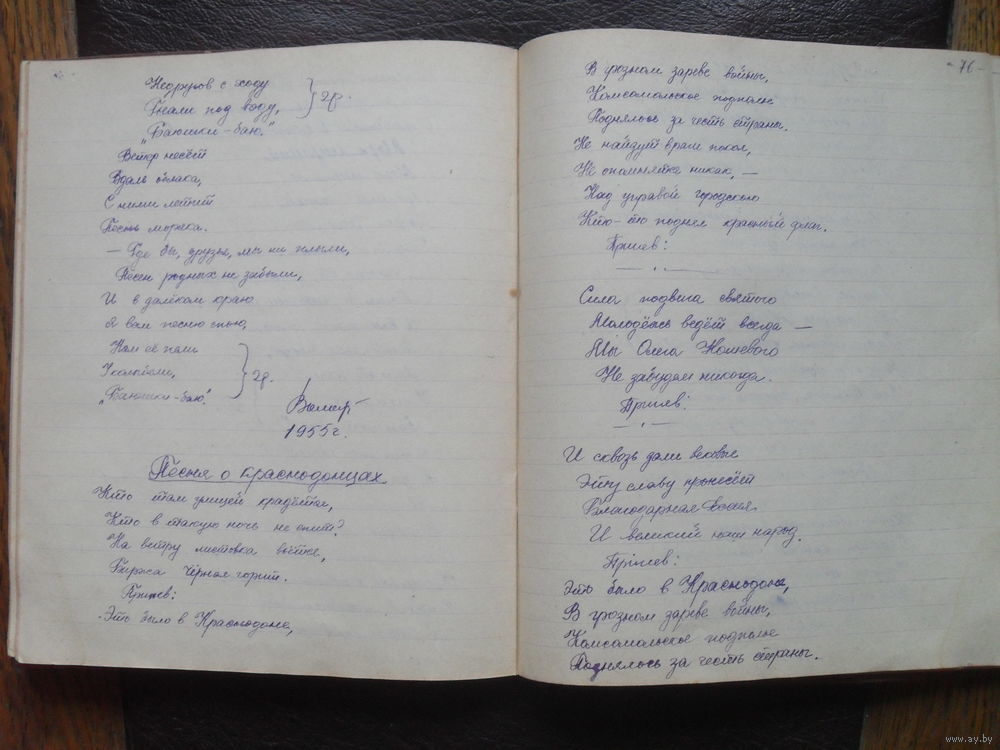 Недругов с ходу
Гнали под воду,
„Баюшки-баю." } 2р.
Ветер несёт
Вдаль облака,
С ними летит
Песнь моряка.
— Где бы, друзья, мы ни плыли,
Песен родных не забыли,
И в далёком краю
Я вам песню спою,
Нам её пели
У колыбели,
„Баюшки-баю." } 2р.
1955г.
Песня о краснодонцах
Кто там улицей крадётся,
Кто в такую ночь не спит?
На ветру листовка вьётся,
Биржа чёрная горит.
Припев:
Это было в Краснодоне,
76-
В грозном зареве войны,
Комсомольское подполье
Поднялось за честь страны.
Не найдут враги покоя,
Не опомнятся никак, —
Над управой городскою
Кто-то поднял красный флаг.
Припев:
Сила подвига святого
Молодёжь ведёт всегда —
Мы Олега Кошевого
Не забудем никогда.
Припев:
И сквозь дали вековые
Эту славу пронесёт
Благодарная Россия
И великий наш народ.
Припев:
Это было в Краснодоне,
В грозном зареве войны,
Комсомольское подполье
Поднялось за честь страны.
www.ay.by